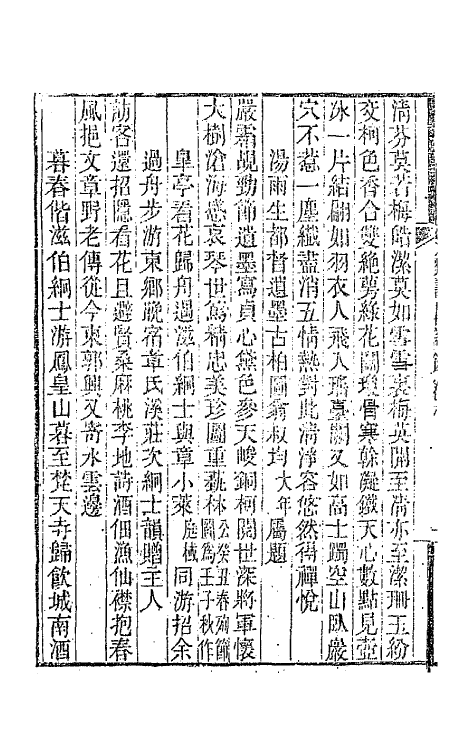 清芬莫若梅皓潔莫如雪雪裏梅英開至清亦至潔珊玉紛
交柯色香合雙絶剪綵花鬬瓊骨寒榦凝鐵天心數點見壺
冰一片結翩如羽衣人飛入瑤臺闕又如高士躅空山臥巖
穴不惹一塵纖盡消五情熱對此清淨容悠然得禪悅
湯雨生都督遺墨古柏圖翁叔均大年屬題
嚴霜覘勁節遺墨寫貞心黛色參天峻銅柯閱世深將軍懷
大樹滄海感哀琴世篤精忠美珍圖重藝林公癸丑春殉節圖爲壬子秋作
皐亭看花歸舟過滋伯綱士與章小萊庭棫同游招余
過舟步游東鄉旋宿章氏溪莊次綱士韻贈主人
訪客還招隱看花且避賢桑麻桃李地詩酒佃漁仙襟抱春
風挹文章野老傳從今東郭興又寄水雲邊
暮春偕滋伯綱士游鳳皇山暮至梵天寺歸飲城南酒